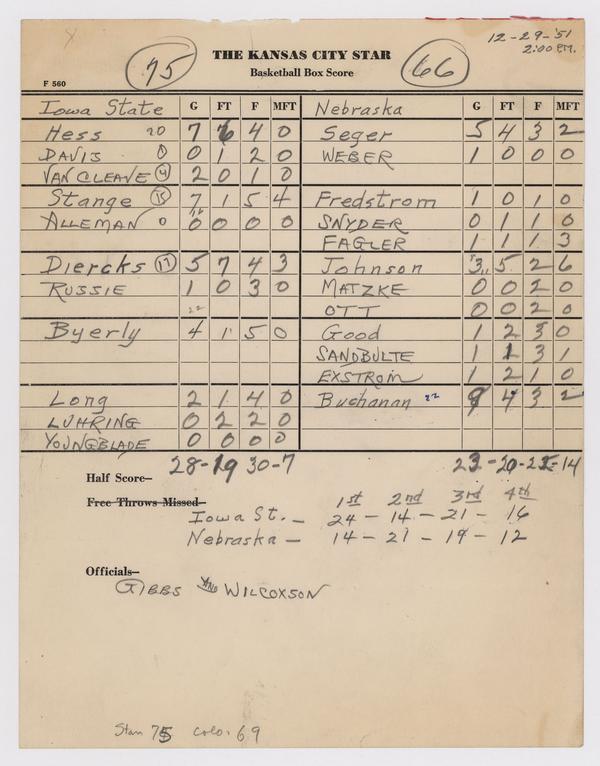 12-29-'51
2:00 P.M.
75
THE KANSAS CITY STAR
Basketball Box Score
66
F 560
Iowa State G FT F MFT Nebraska G FT F MFT
Hess 20 7 6 4 0 Seger 5 4 3 2
DAVIS 0 0 1 2 0 WEBER 1 0 0 0
VAN CLEAVE 4 2 0 1 0
Stange 15 7 1 5 4 Fredstrom 1 0 1 0
ALLEMAN 0 0 0 0 0 SNYDER 0 1 1 0
FAGLER 1 1 1 3
Diercks 17 5 7 4 3 Johnson 3 5 2 6
RUSSIE 1 0 3 0 MATZKE 0 0 2 0
OTT 0 0 2 0
Byerly 4 1 5 0 Good 1 2 3 0
SANDBULTE 1 1 3 1
EXSTROM 1 2 1 0
Long 2 1 4 0 Buchanan 22 9 4 3 2
LUHRING 0 2 2 0
YOUNGBLADE 0 0 0 0
28-19 30-7 23-20-21-14
Half Score—
Free Throws Missed—
1st 2nd 3rd 4th
Iowa St. — 24 — 14 — 21 — 16
Nebraska — 14 — 21 — 19 — 12
Officials—
GIBBS AND WILCOXSON
Stan 75 Colo. 69